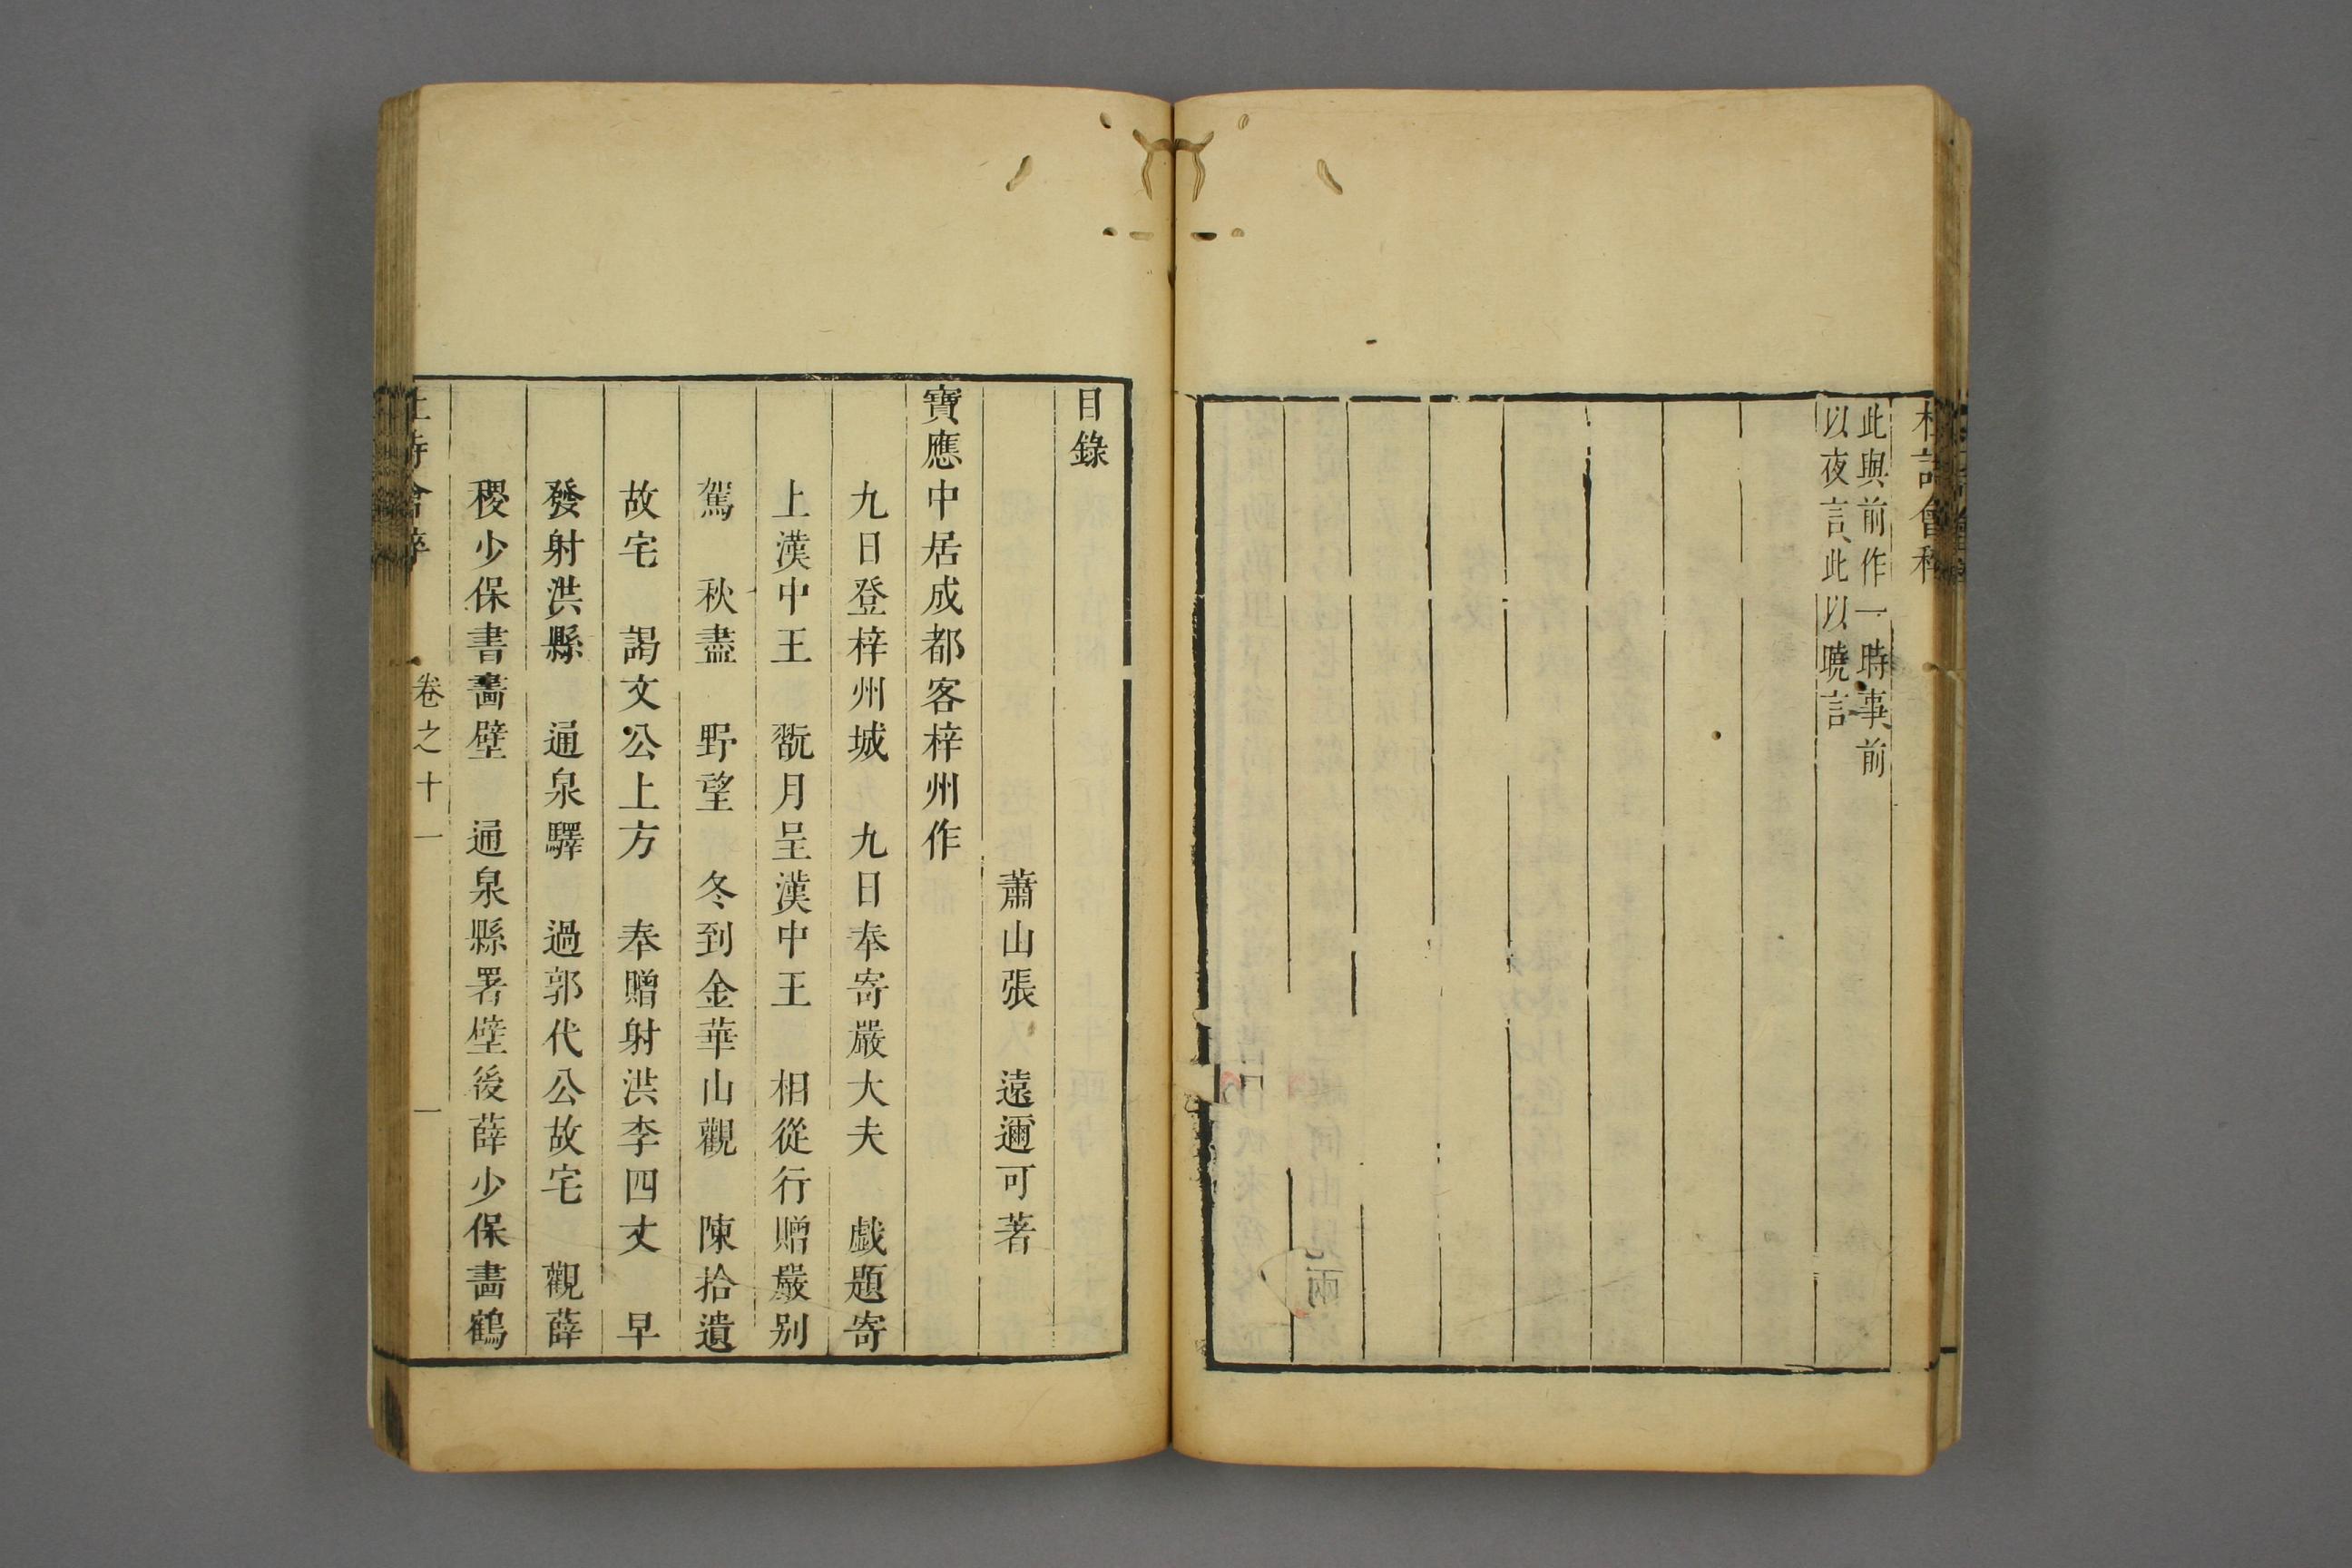 杜詩會稡
此與前作一時事、前
以夜言、此以曉言
目錄
蕭山張　遠邇可著
寶應中居成都客梓州作
九日登梓州城　九日奉寄嚴大夫　戯題寄
上漢中王　翫月呈漢中王　相從行贈嚴别
駕　秋盡　野望　冬到金華山觀　陳拾遺
故宅　謁文公上方　奉贈射洪李四丈　早
發射洪縣　通泉驛　過郭代公故宅　觀薛
稷少保書畵壁　通泉縣署壁後薛少保畵鶴
卷之十一　一